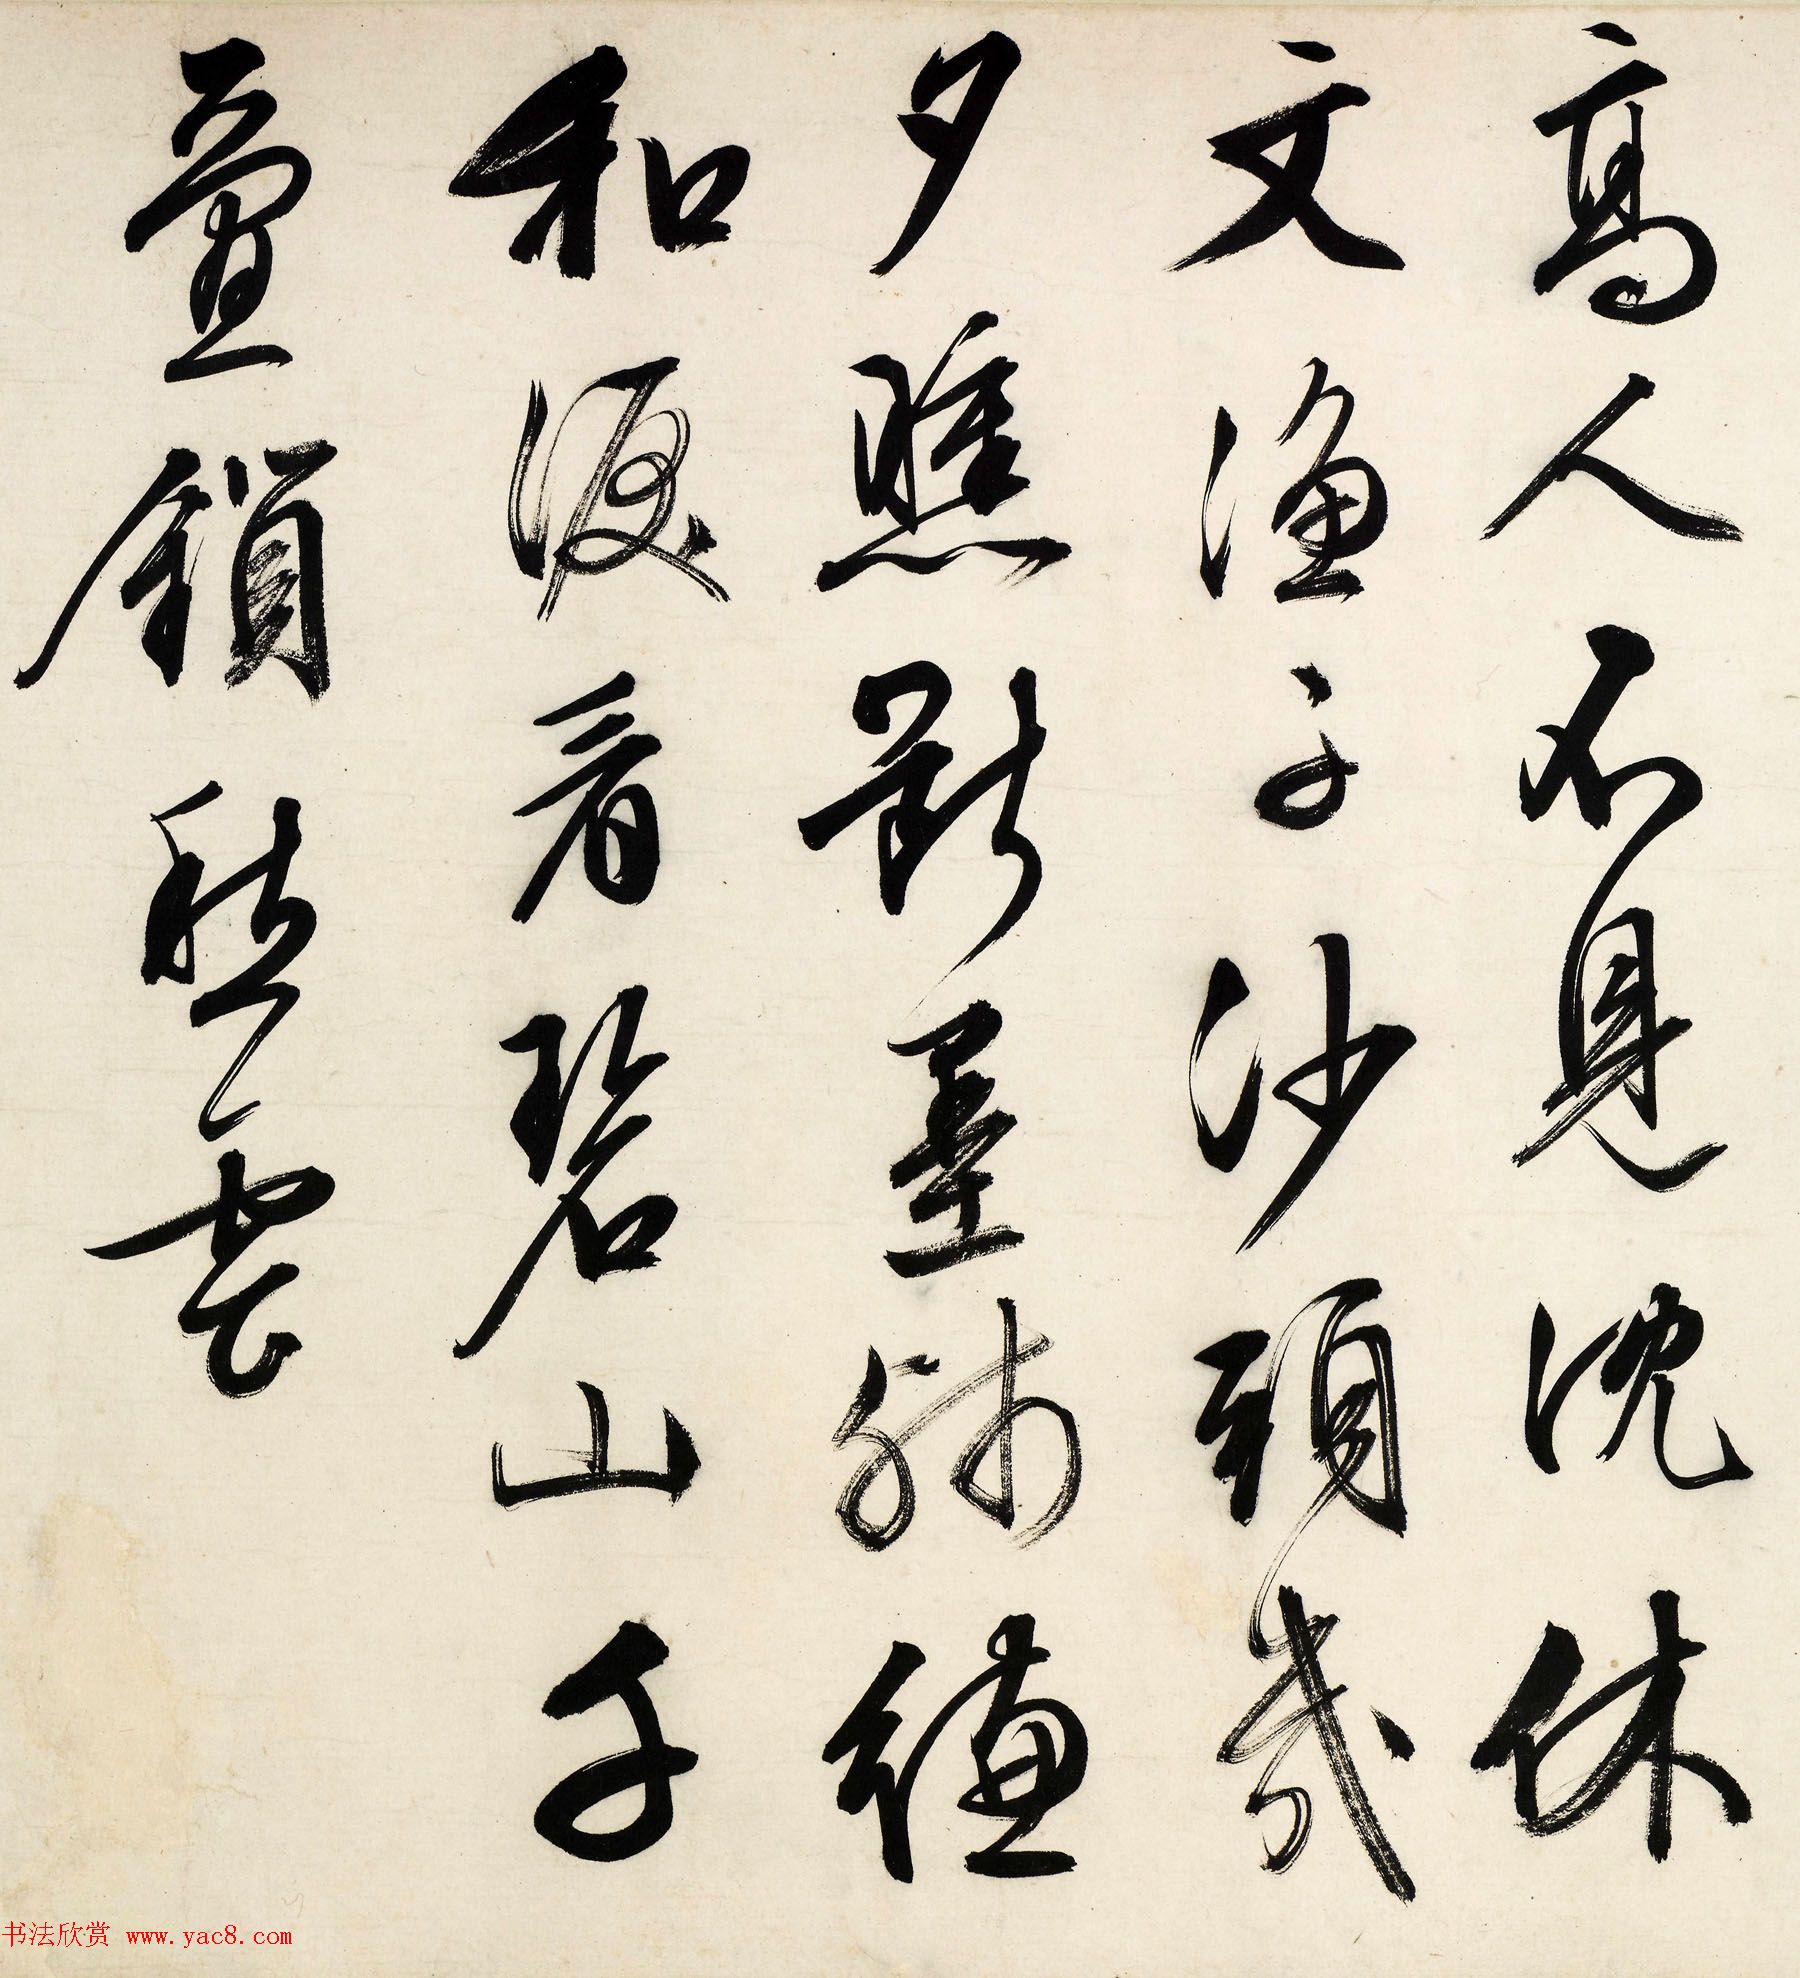 高人不見沈休
文渔子沙頭幾
夕曛斷墨殘縑
和淚看碧山千
疊鎖愁雲
书法欣赏 www.yac8.com